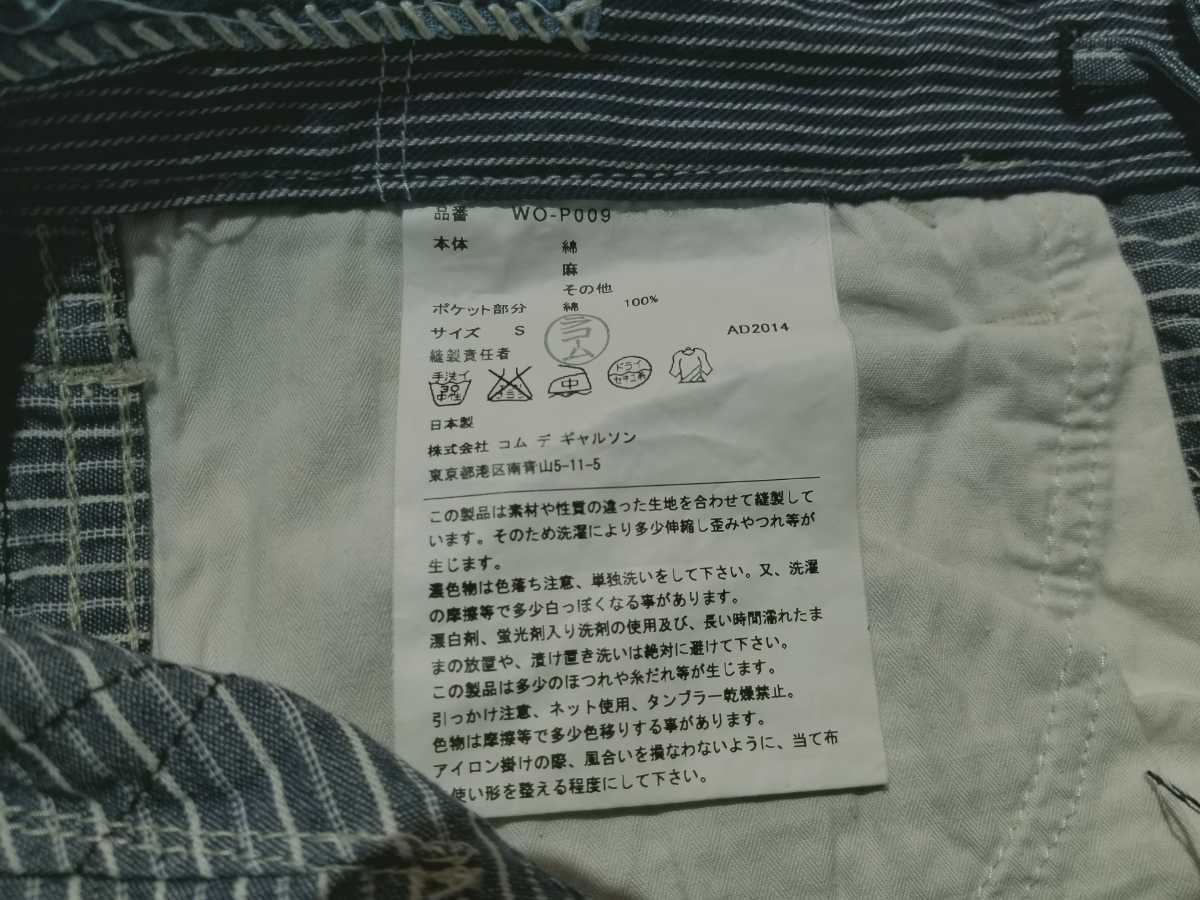 品番 WO-P009
本体 綿
麻
その他
ポケット部分 綿 100%
サイズ S
AD2014
縫製責任者
ニコーム
手洗イ
30
中性
エンソサラシ
中
ドライ
セキユ系
日本製
株式会社 コム デ ギャルソン
東京都港区南青山5-11-5
この製品は素材や性質の違った生地を合わせて縫製して
います。そのため洗濯により多少伸縮し歪みやつれ等が
生じます。
濃色物は色落ち注意、単独洗いをして下さい。又、洗濯
の摩擦等で多少白っぽくなる事があります。
漂白剤、蛍光剤入り洗剤の使用及び、長い時間濡れたま
まの放置や、漬け置き洗いは絶対に避けて下さい。
この製品は多少のほつれや糸だれ等が生じます。
引っかけ注意、ネット使用、タンブラー乾燥禁止。
色物は摩擦等で多少色移りする事があります。
アイロン掛けの際、風合いを損なわないように、当て布
使い形を整える程度にして下さい。